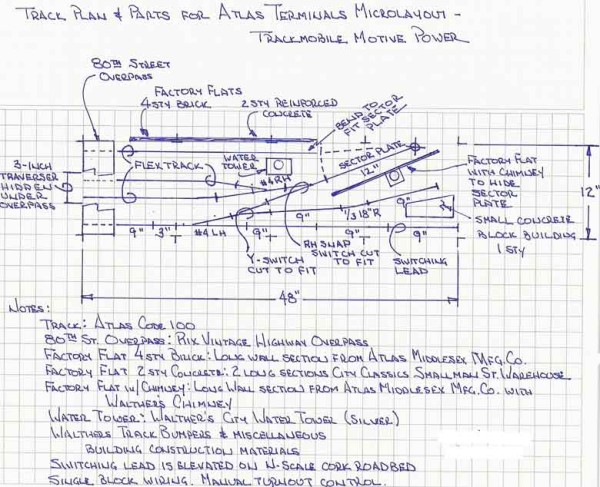 TRACK PLAN & PARTS FOR ATLAS TERMINALS MICROLAYOUT -
TRACKMOBILE MOTIVE POWER
80TH STREET
OVERPASS
FACTORY FLATS
4 STY BRICK
2 STY REINFORCED
CONCRETE
BEND TO
FIT SECTOR
PLATE
3-INCH
TRAVERSER
HIDDEN
UNDER
OVERPASS
FLEXTRACK
WATER
TOWER
#4 RH
SECTOR PLATE
12"
FACTORY FLAT
WITH CHIMNEY
TO HIDE
SECTOR
PLATE
12"
9"
1/3 18"R
9"
SMALL CONCRETE
BLOCK BUILDING
1 STY
9"
3"
#4 LH
9"
9"
9"
9"
Y-SWITCH
CUT TO FIT
RH SNAP
SWITCH CUT
TO FIT
SWITCHING
LEAD
48"
NOTES:
TRACK: ATLAS CODE 100
80TH ST. OVERPASS: RIX VINTAGE HIGHWAY OVERPASS
FACTORY FLAT 4 STY BRICK: LONG WALL SECTION FROM ATLAS MIDDLESEX MFG. CO.
FACTORY FLAT 2 STY CONCRETE: 2 LONG SECTIONS CITY CLASSICS SMALLMAN ST. WAREHOUSE
FACTORY FLAT W/CHIMNEY: LONG WALL SECTION FROM ATLAS MIDDLESEX MFG. CO. WITH
WALTHER'S CHIMNEY
WATER TOWER: WALTHER'S CITY WATER TOWER (SILVER)
WALTHERS TRACK BUMPERS & MISCELLANEOUS
BUILDING CONSTRUCTION MATERIALS
SWITCHING LEAD IS ELEVATED ON N-SCALE CORK ROADBED
SINGLE BLOCK WIRING. MANUAL TURNOUT CONTROL.